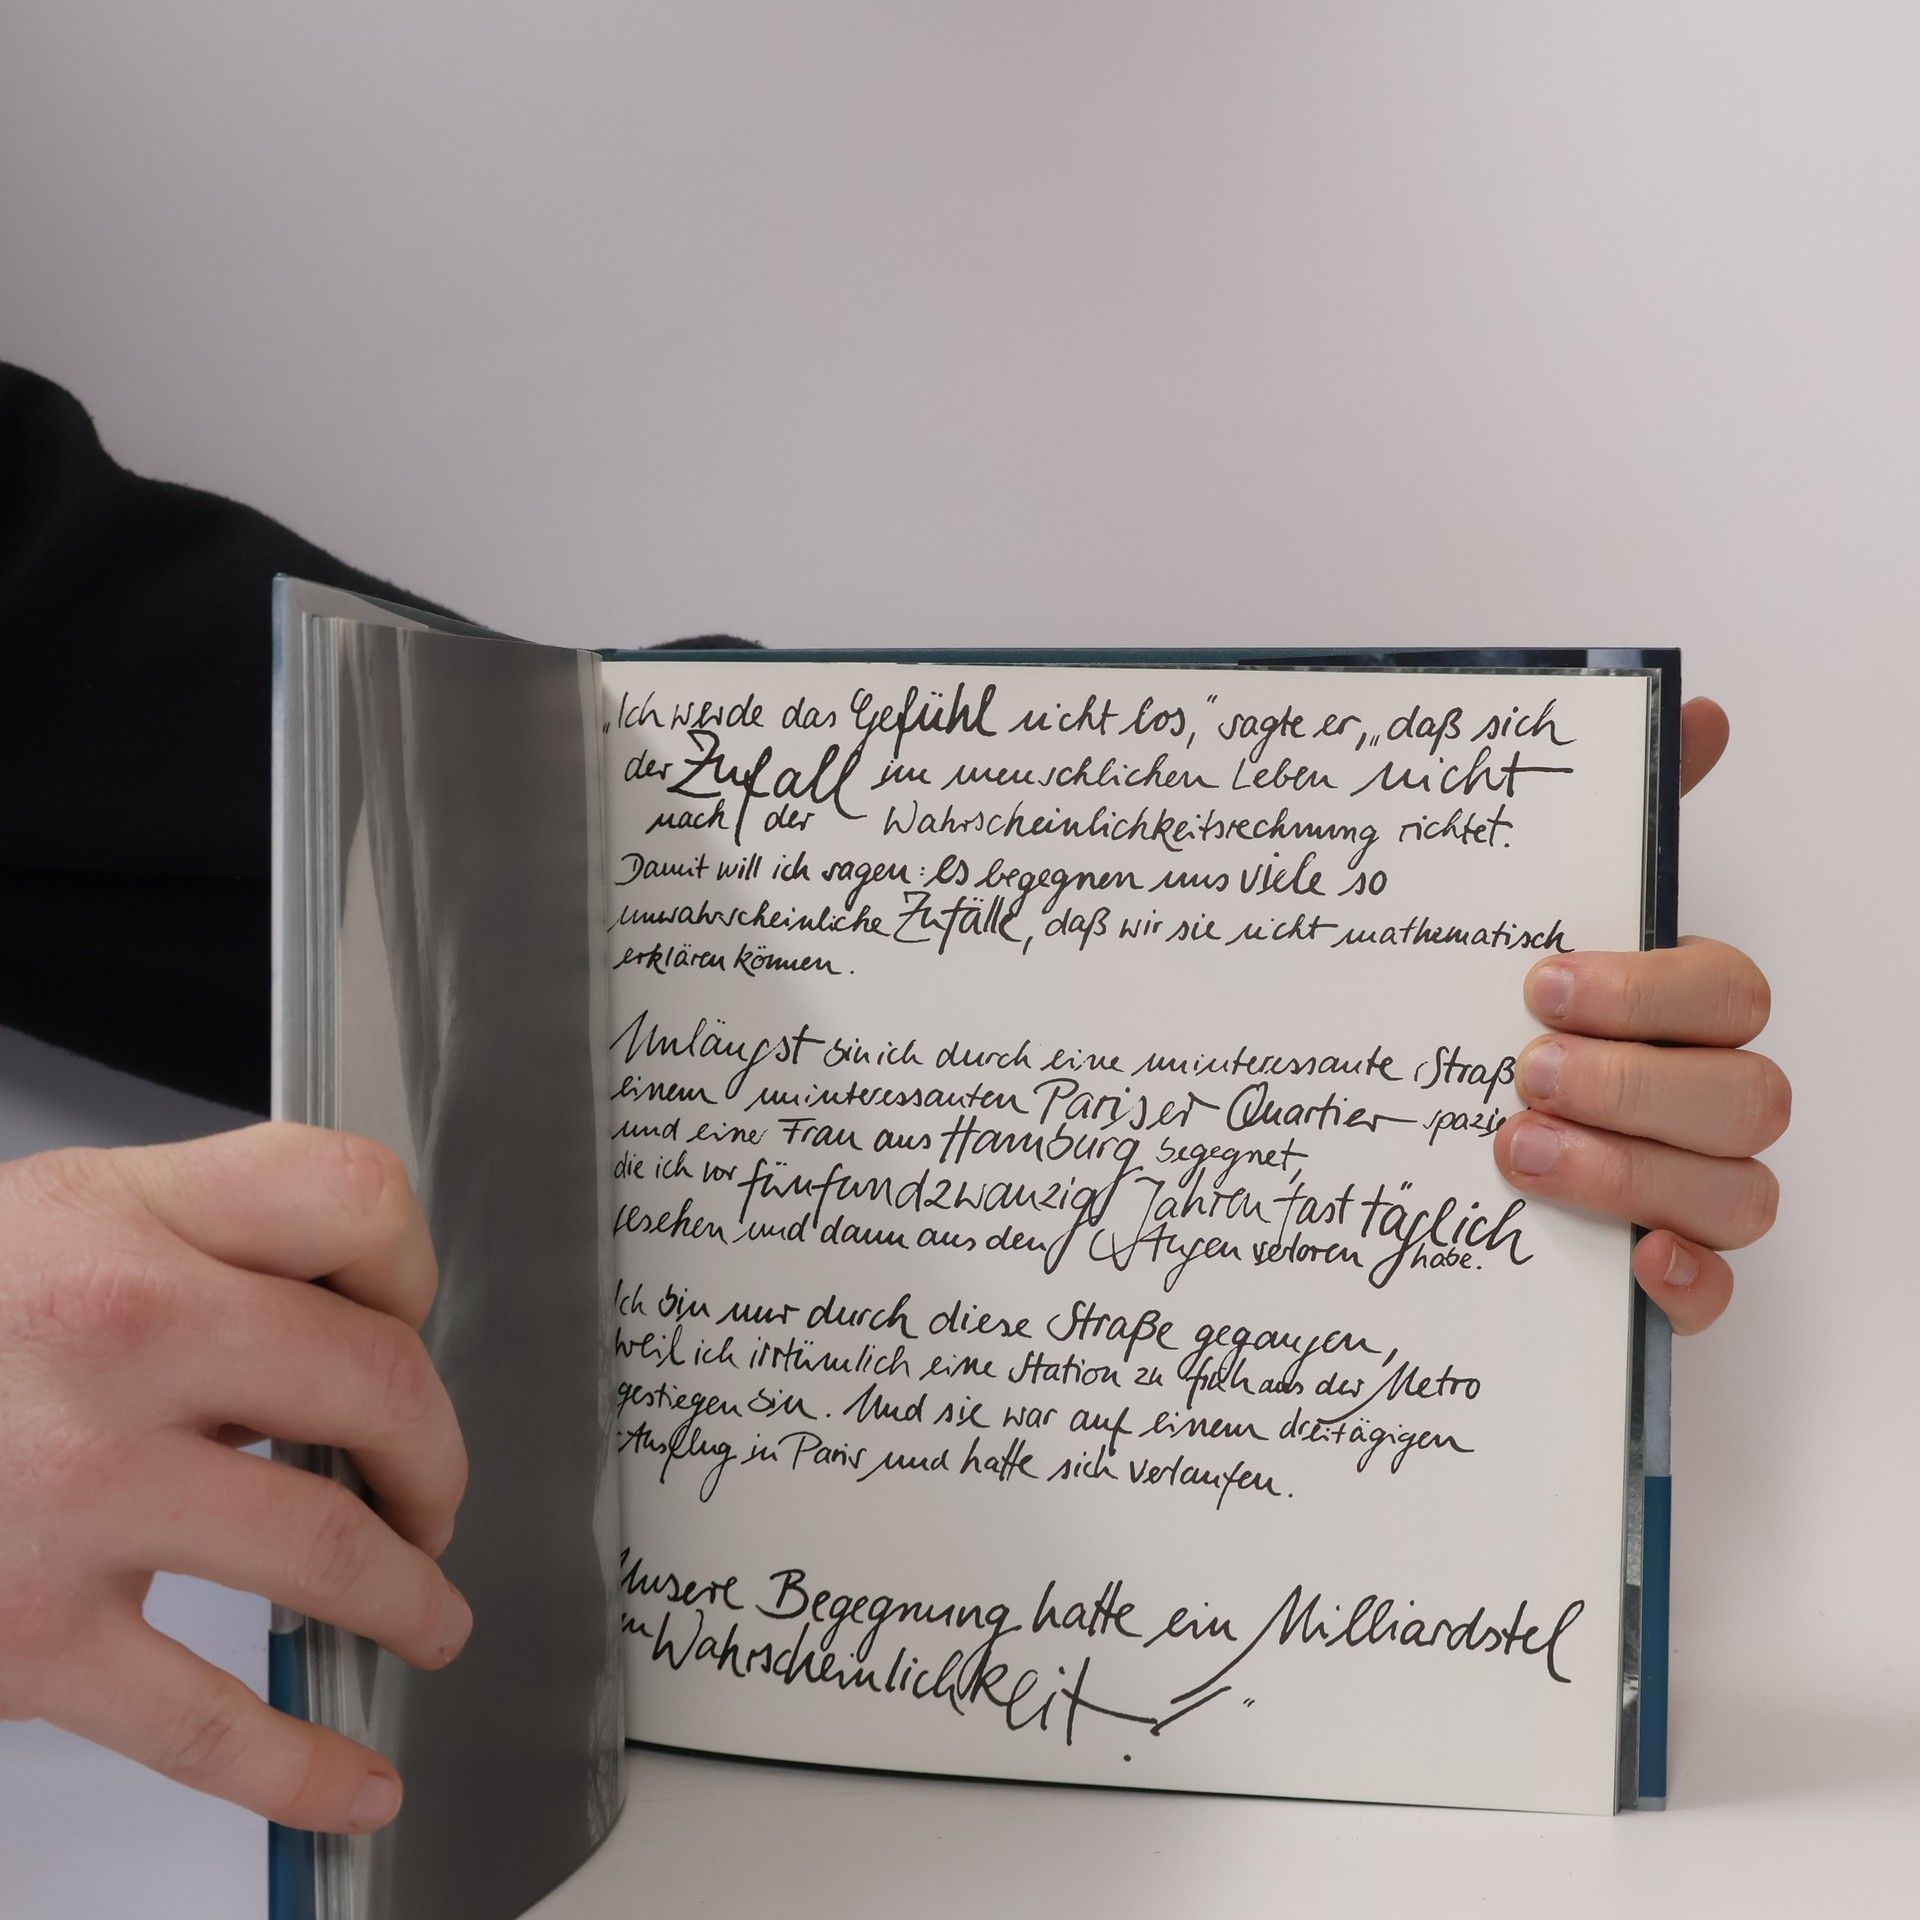 „Ich werde das Gefühl nicht los,“ sagte er, „daß sich
der Zufall im menschlichen Leben nicht
nach der Wahrscheinlichkeitsrechnung richtet.
Damit will ich sagen: es begegnen uns viele so
unwahrscheinliche Zufälle, daß wir sie nicht mathematisch
erklären können.
Unlängst bin ich durch eine uninteressante Straß
einem uninteressanten Pariser Quartier spazie
und einer Frau aus Hamburg begegnet,
die ich vor fünfundzwanzig Jahren fast täglich
gesehen und dann aus den Augen verloren habe.
Ich bin nur durch diese Straße gegangen,
weil ich irrtümlich eine Station zu früh aus der Metro
gestiegen bin. Und sie war auf einem dreitägigen
Ausflug in Paris und hatte sich verlaufen.
Unsere Begegnung hatte ein Milliardstel
an Wahrscheinlichkeit.“